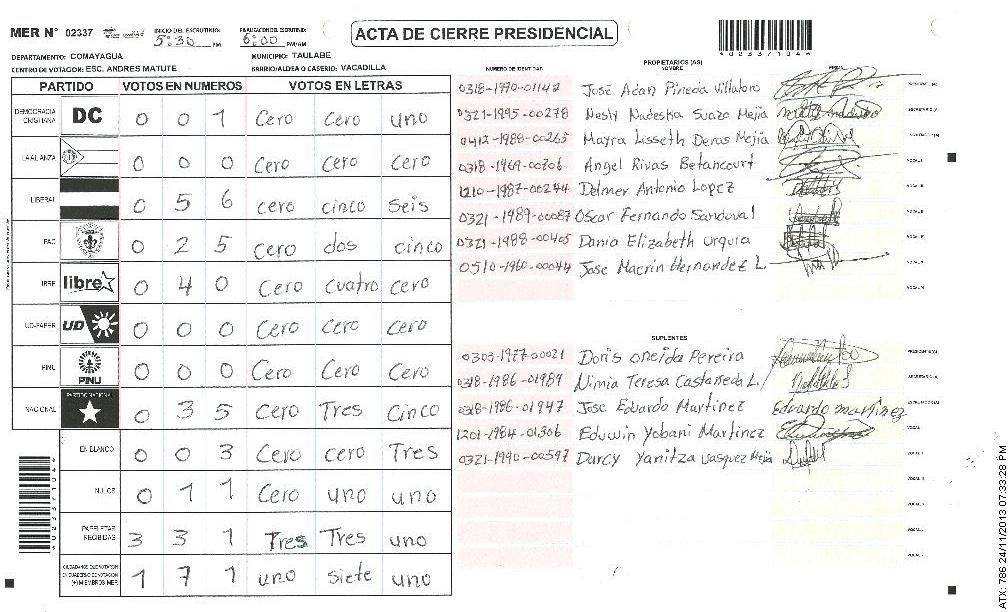 MER N° 02337 INICIO DEL ESCRUTINIO: 5:30 PM FINALIZACION DEL ESCRUTINIO: 6:00 PM/AM
ACTA DE CIERRE PRESIDENCIAL
DEPARTAMENTO: COMAYAGUA MUNICIPIO: TAULABE
CENTRO DE VOTACION: ESC. ANDRES MATUTE BARRIO/ALDEA O CASERIO: VACADILLA
PARTIDO VOTOS EN NUMEROS VOTOS EN LETRAS
DEMOCRACIA CRISTIANA DC 0 0 1 Cero Cero uno
LA ALIANZA 0 0 0 Cero Cero Cero
LIBERAL 0 5 6 cero cinco Seis
PAC 0 2 5 Cero dos cinco
LIBRE libre 0 4 0 Cero Cuatro Cero
UD-FAPER UD 0 0 0 Cero Cero Cero
PINU PINU 0 0 0 Cero Cero Cero
NACIONAL PARTIDO NACIONAL 0 3 5 Cero Tres Cinco
EN BLANCO 0 0 3 Cero cero Tres
NULOS 0 1 1 Cero uno uno
PAPELETAS RECIBIDAS 3 3 1 Tres Tres uno
CIUDADANOS QUE VOTARON EN CUADERNO DE VOTACION (+) MIEMBROS MER 1 7 1 uno siete uno
PROPIETARIOS (AS)
NUMERO DE IDENTIDAD NOMBRE FIRMA
0318-1990-01142 José Adan Pineda Villaloro PRESIDENTE (A)
0321-1995-00278 Nesly Nadeska Suazo Mejia SECRETARIO (A)
0412-1988-00265 Mayra Lisseth Deras Mejia
0318-1969-00706 Angel Rivas Betancourt
1210-1987-00244 Delmer Antonio Lopez
0321-1989-00087 Oscar Fernando Sandoval
0321-1988-00405 Dania Elizabeth Urquia
0510-1960-00044 Jose Macrin Hernandez L.
SUPLENTES
0303-1977-00021 Doris Oneida Pereira PRESIDENTE (A)
0318-1986-01989 Nimia Teresa Castañeda L. SECRETARIO (A)
0318-1986-01947 Jose Eduardo Martinez Eduardo martinez
1201-1984-01306 Eduwin Yobani Martinez
0321-1990-00597 Darcy Yanitza Vasquez Mejia
ATX: 786 24/11/2013 07:33:28 PM